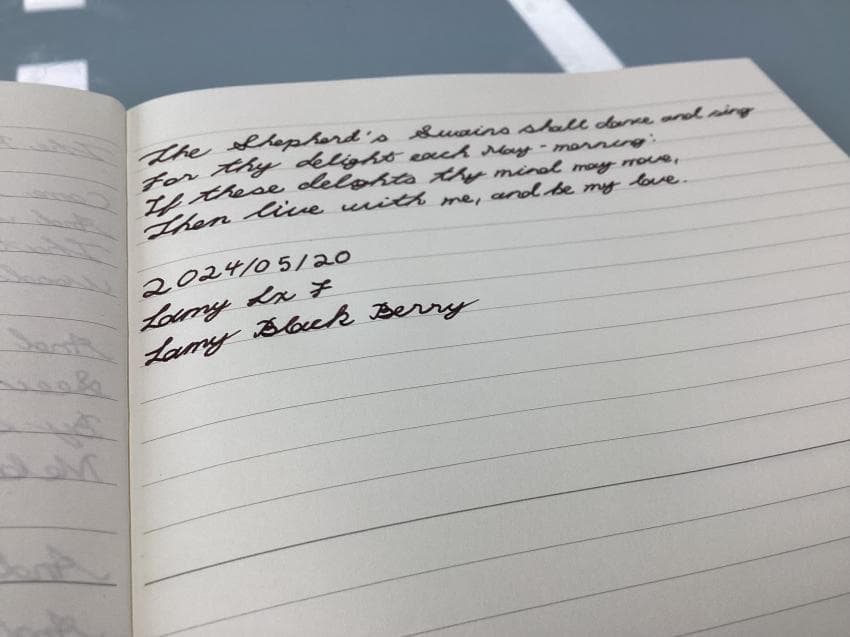 The Shepherd's Swains shall dance and sing
For thy delight each May-morning:
If these delights thy mind may move,
Then live with me, and be my love.
2024/05/20
Lamy Lx F
Lamy Black Berry